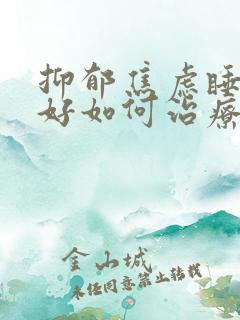 抑郁焦虑睡
好如何治疗
金山城
未经同意禁止转载